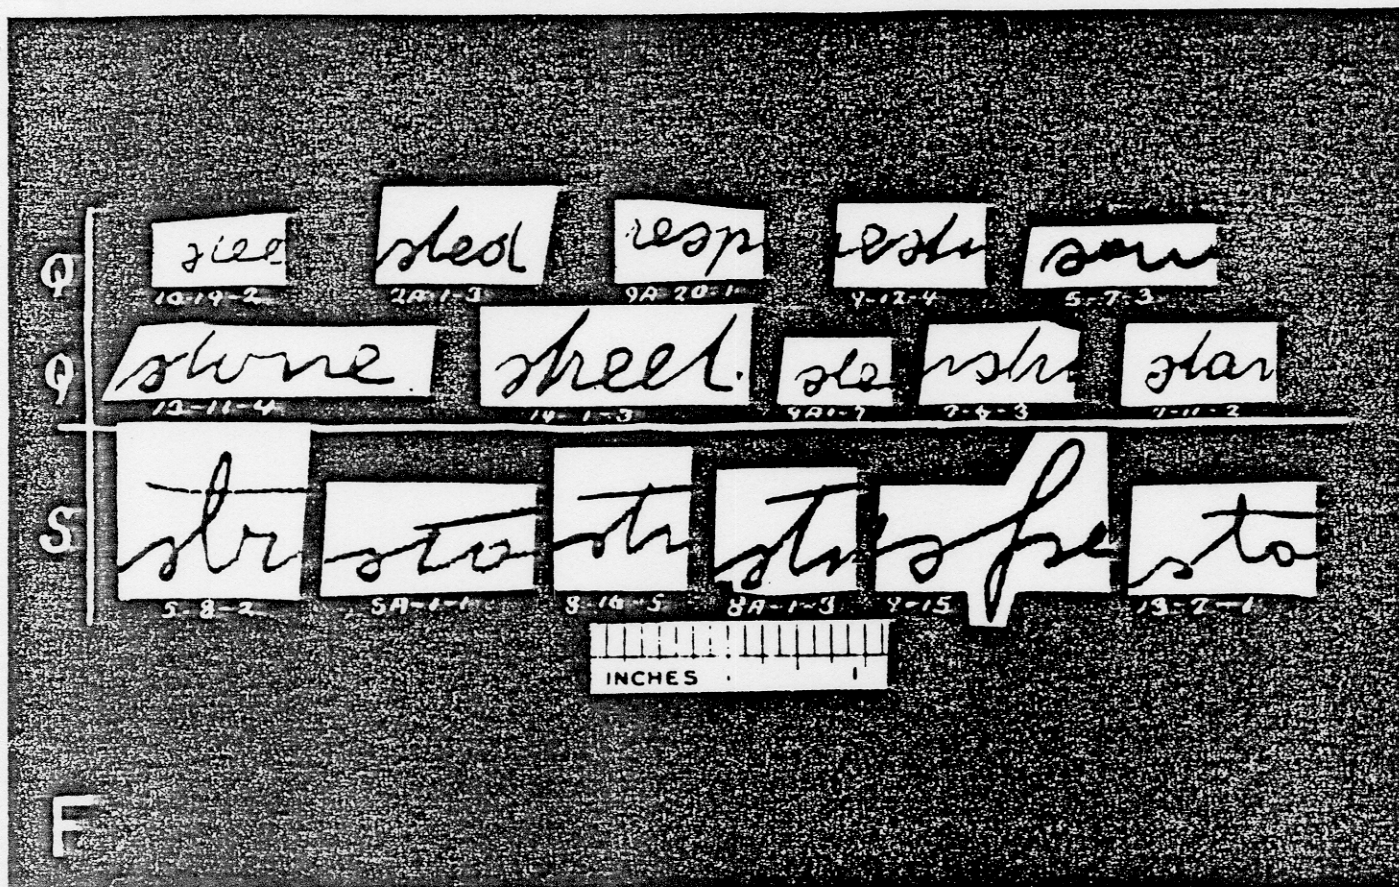 Q stee sted resp estr sou
10-19-2 2A-1-3 9A-20-1 4-12-4 5-7-3
Q stone. street. ste nstr star
13-11-4 14-1-3 9A1-7 7-6-3 7-11-2
S str sto str str sfse sto
5-8-2 5A-1-1 8-16-5 8A-1-3 4-15 13-7-1
INCHES 1
F